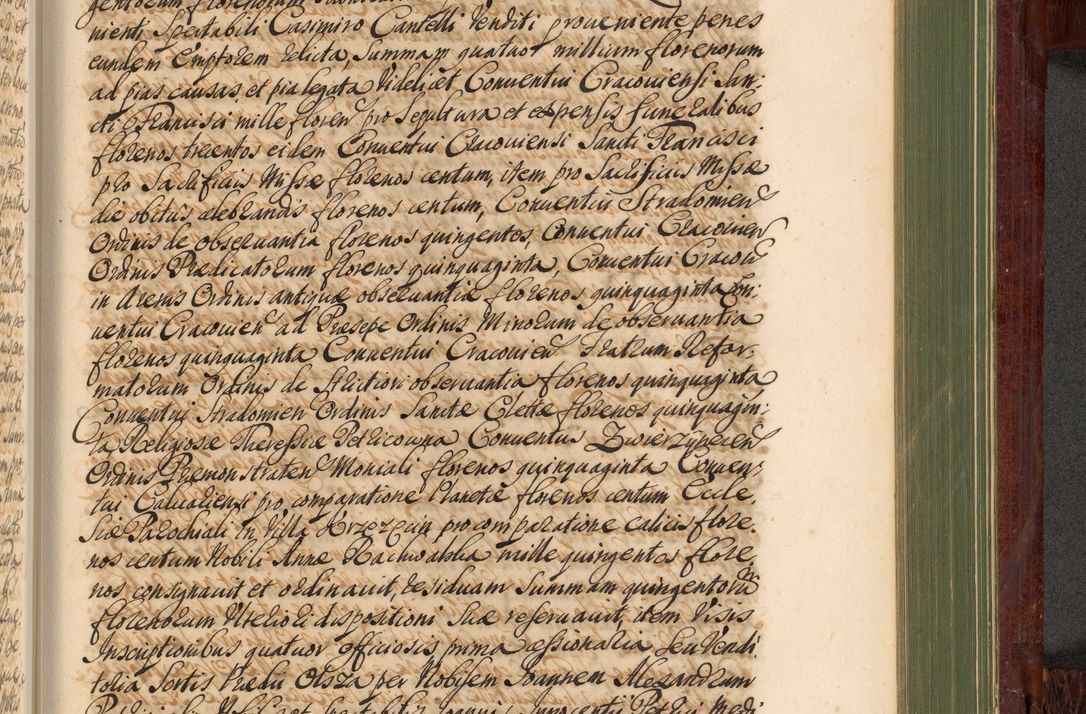 nienti Spectabili Casimiro Cantelli Venditi proueniente penes
eundem Emptorem relicta, Summam quatuor millium florenorum
ad pias causas, et pia legata Videlicet Conuentui Cracouiensi San:
cti Francisci mille floren pro Sepultura et expensis funeralibus
florenos trecentos eidem Conuentui Cracouiensi Sancti Francisci
pro Sacrificiis Missæ florenos centum, item pro Sacrificiis Missæ
die obitus celebrandis florenos centum, Conuentui Stradomien
Ordinis de obseruantia florenos quingentos, Conuentui Cracouien
Ordinis Prædicatorum florenos quinquaginta, Conuentui Cracou
in Arenis Ordinis antiquæ obseruantiæ florenos quinquaginta Con:
uentui Cracouien ad Præsepe Ordinis Minorum de obseruantia
florenos quinquaginta Conuentui Cracouien Fratrum Refor:
matorum Ordinis de Strictiori obseruantia florenos quinquaginta
Conuentui Stradomien Ordinis Sanctæ Claræ florenos quinquagin:
ta, Religiosæ Theressiæ Petricowna Conuentus Zwierzynecen
Ordinis Præmonstraten Moniali florenos quinquaginta Conuen:
tui Caluariensi pro comparatione Planetæ florenos centum Eccle,
siæ Parochiali in Villa Krzęcin pro comparatione calicis flore,
nos centum Nobili Annæ mille quingentos flore
nos consignauit et ordinauit, residuam Summam quingentorum
florenorum Vlteriori dispositioni suæ reseruauit, item Visis
Inscriptionibus quatuor officiosis, prima cessionalia seu Vendi
toria Sortis Prædii Olsza per Nobilem Joannem Alexandrum